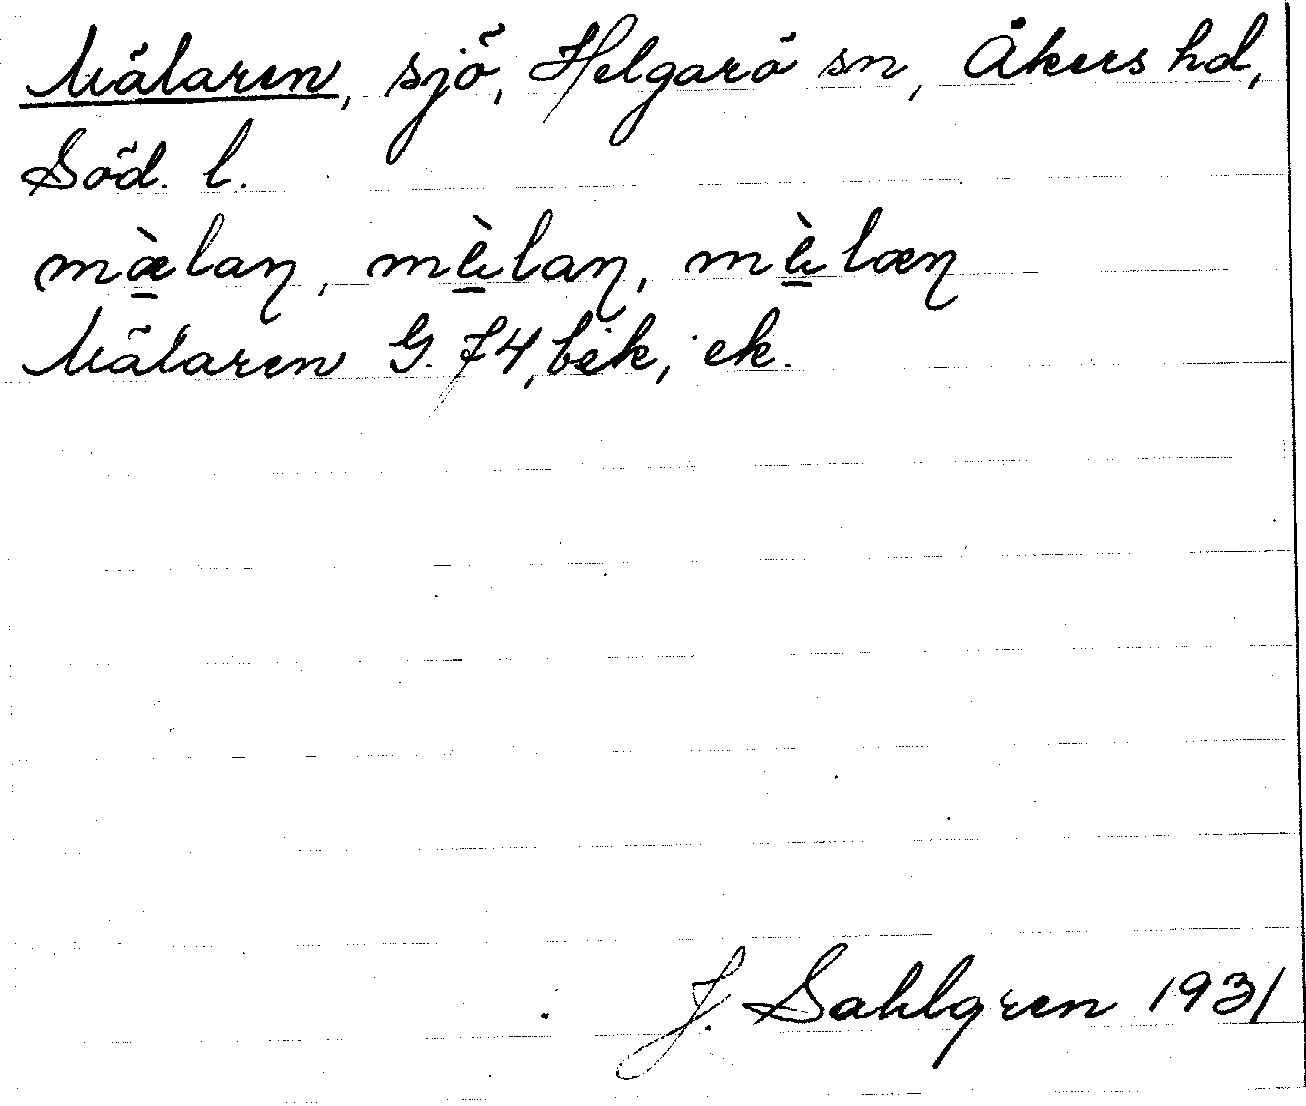 Mälaren, sjö, Helgarö sn, Åkers hd,
Söd. l.
mæ̀laɳ, mὲlaɳ, mὲlæɳ
Mälaren G. 74, bek, ek.
J. Sahlgren 1931